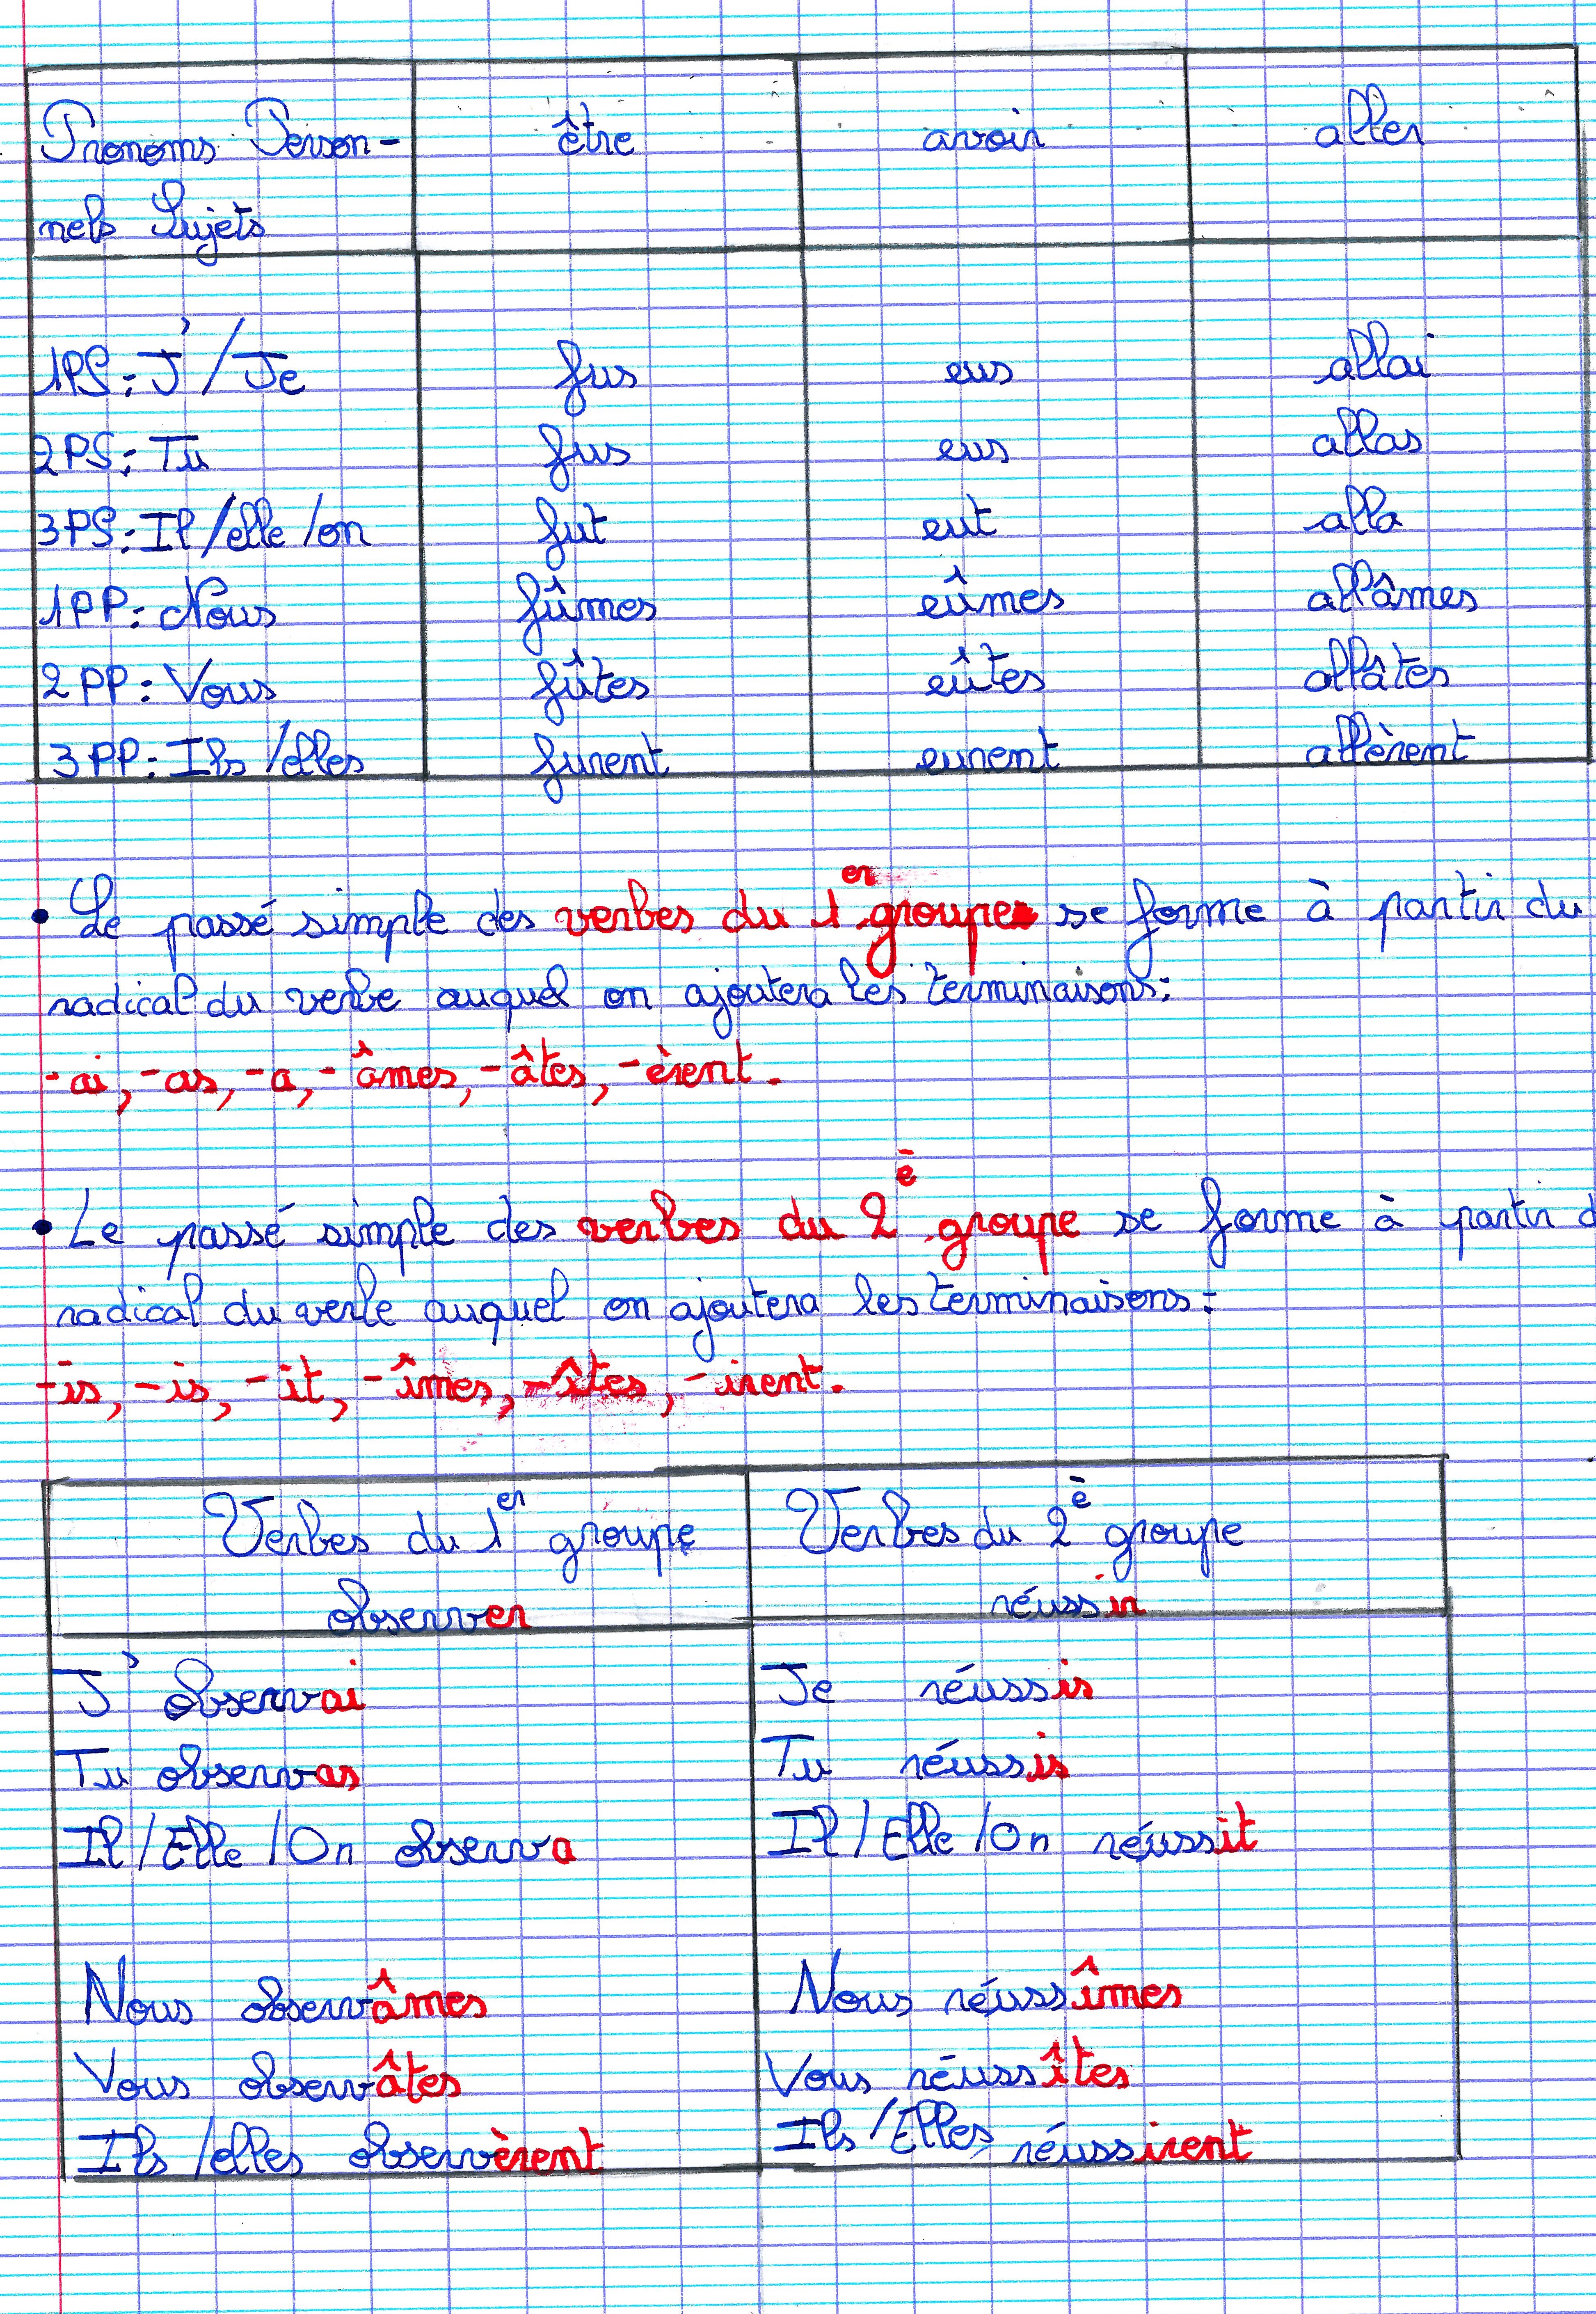 Pronoms Person- être avoir aller
nels Sujets
1PS: J'/Je fus eus allai
2PS: Tu fus eus allas
3PS: Il/elle/on fut eut alla
1PP: Nous fûmes eûmes allâmes
2PP: Vous fûtes eûtes allâtes
3PP: Ils/elles furent eurent allèrent
• Le passé simple des verbes du 1er groupe se forme à partir du
radical du verbe auquel on ajoutera les terminaisons:
-ai, -as, -a, -âmes, -âtes, -èrent.
• Le passé simple des verbes du 2è groupe se forme à partir d
radical du verbe auquel on ajoutera les terminaisons:
-is, -is, -it, -îmes, -îtes, -irent.
Verbes du 1er groupe Verbes du 2è groupe
observer réussir
J'observai Je réussis
Tu observas Tu réussis
Il/Elle/On observa Il/Elle/On réussit
Nous observâmes Nous réussîmes
Vous observâtes Vous réussîtes
Ils/elles observèrent Ils/Elles réussirent